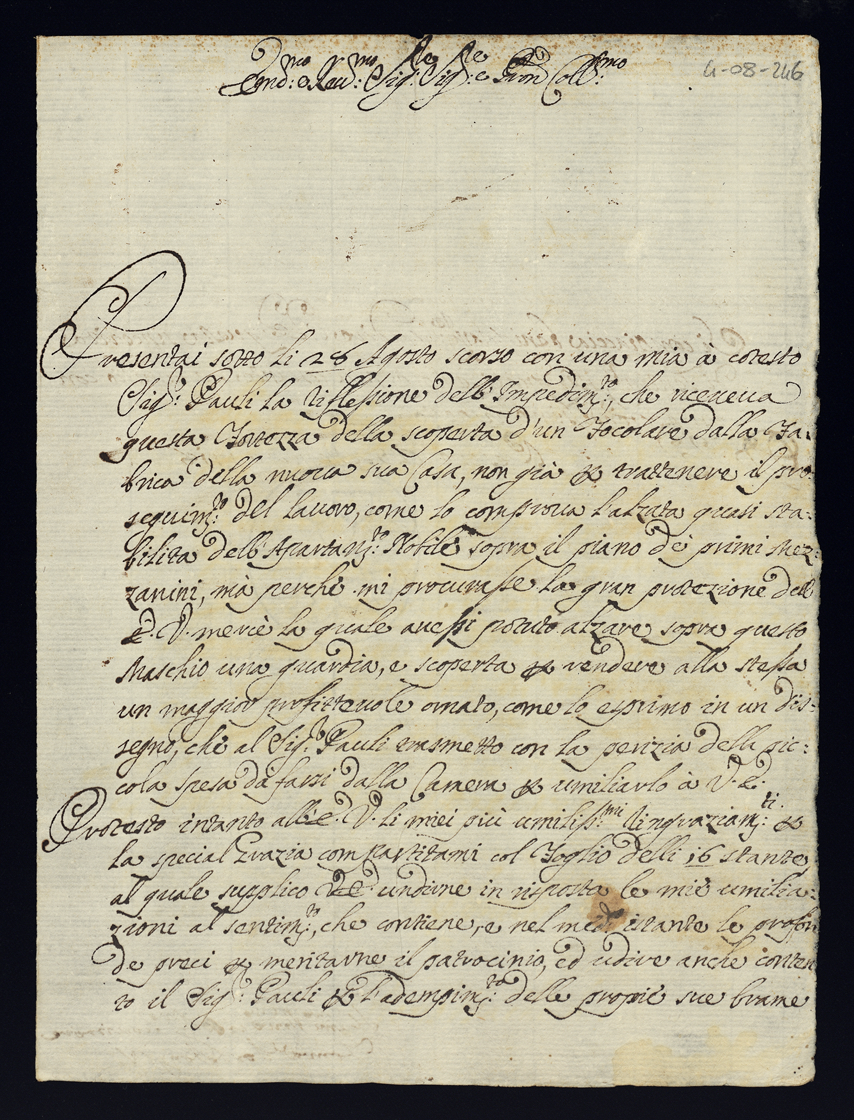 Emd:mo e Rev:mo Sig:re Sig:re e Pron Coll:mo
4-08-246
Presentai sotto li 28 Agosto scorso con una mia à cotesto
Sig:r Pauli la riflessione dell'Impedim:to, che riceveva
questa Fortezza della scoperta d'un Focolare dalla Fa-
brica della nuova sua Casa, non già per trattenere il pro-
seguim:to del lavoro, come lo comprova l'alzata quasi sta-
bilita dell'Apartam:to Nobile sopra il piano de primi Mez-
zanini, mà perche mi procurasse la gran protezione dell'
E. V. mercè la quale avessi potuto alzare sopra questo
Maschio una guardia, e scoperta per rendere alla stessa
un maggior profittevole ornato, come lo esprimo in un dis-
segno, che al Sig:r Pauli trasmetto con la perizia della pic-
cola spesa da farsi dalla Camera per umiliarlo à V. E.
Protesto intanto all'E. V. li miei più umiliss:mi ringraziam:ti per
la special grazia compartitami col Foglio delli 16 stante,
al quale supplico V. E. udirne in risposta le mie umilia-
zioni al sentim:to, che contiene, e nel med:o istante le profon
de preci per meritarne il patrocinio, ed udire anche conten
to il Sig:r Pauli per l'adempim:to delle proprie sue brame